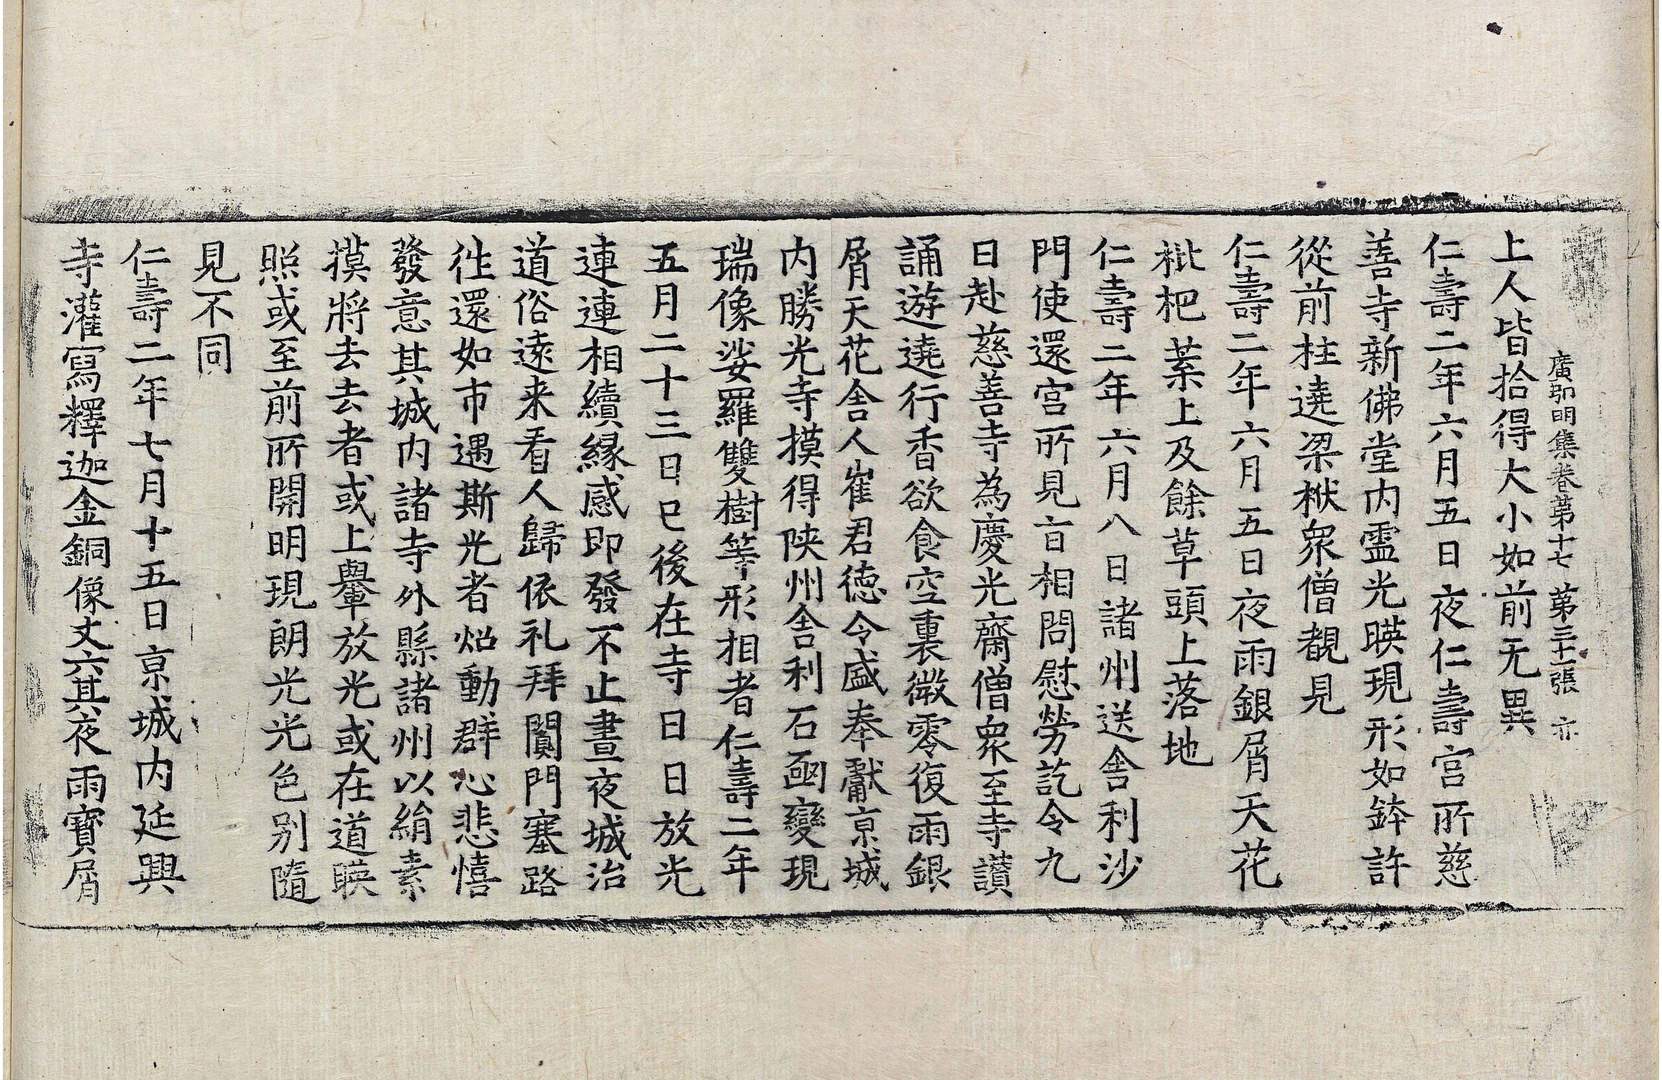 廣弘明集卷第十七 第三十張 亦
上人皆拾得大小如前无異
仁壽二年六月五日夜仁壽宮所慈
善寺新佛堂内霊光暎現形如鉢許
從前柱遶梁栿衆僧覩見
仁壽二年六月五日夜雨銀屑天花
枇杷葉上及餘草頭上落地
仁壽二年六月八日諸州送舎利沙
門使還宮所見旨相問慰勞訖令九
日赴慈善寺為慶光齋僧衆至寺讃
誦遊遶行香欲食空裏微零復雨銀
屑天花舎人崔君德令盛奉獻京城
内勝光寺摸得陝州舎利石函變現
瑞像娑羅雙樹等形相者仁壽二年
五月二十三日巳後在寺日日放光
連連相續縁感即發不止晝夜城治
道俗遠来看人歸依礼拜闐門塞路
往還如市遇斯光者炤動群心悲憘
發意其城内諸寺外縣諸州以絹素
摸將去去者或上轝放光或在道暎
照或至前所開明現朗光光色别隨
見不同
仁壽二年七月十五日京城内延興
寺灌寫釋迦金銅像丈六其夜雨寶屑